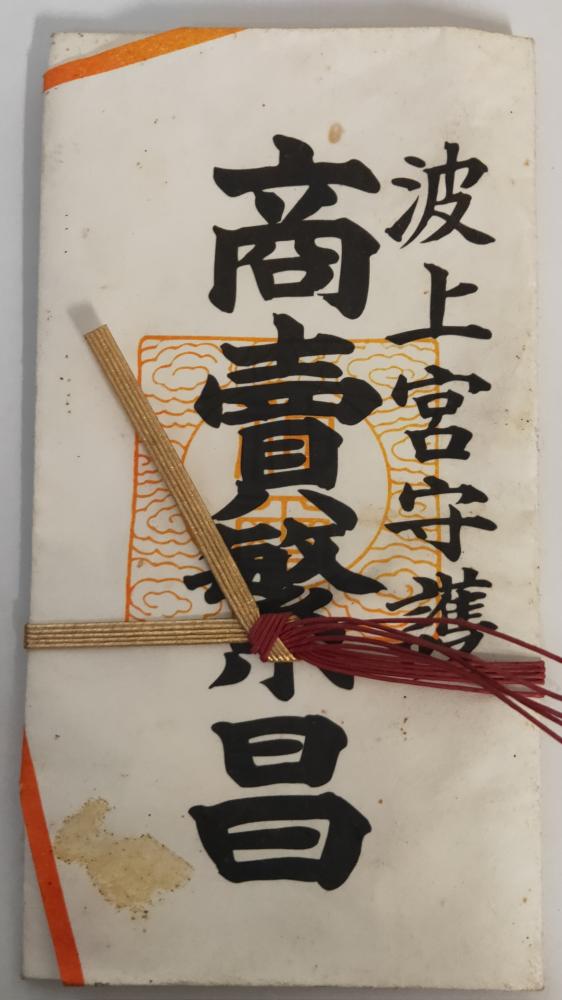 波上宮守護
商賣繁昌